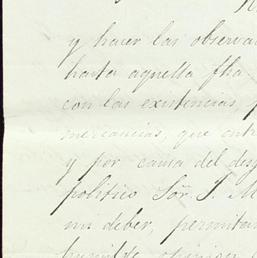 y hacer las observa
hasta aquella fha.
con las existencias,
mercancias, que entr
y por causa del des
politico Sor. J. M
mi deber, permitan
humilde opinion